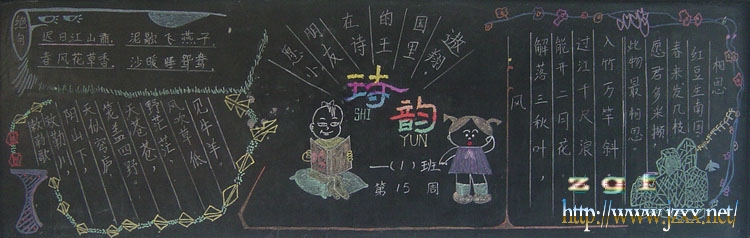 绝句
迟日江山丽，泥融飞燕子，
春风花草香，沙暖睡鸳鸯。
敕勒歌
敕勒川
阴山下，
天似穹庐
笼盖四野。
天苍苍
野茫茫，
风吹草低
见牛羊。
愿小朋友在诗的王国里遨翔，
诗韵
SHI
YUN
一(1)班
第15周
风
解落三秋叶，
能开二月花
过江千尺浪
入竹万竿斜
相思
红豆生南国
春来发几枝
愿君多采撷，
此物最相思。
zgf
http://www.jzxx.net/